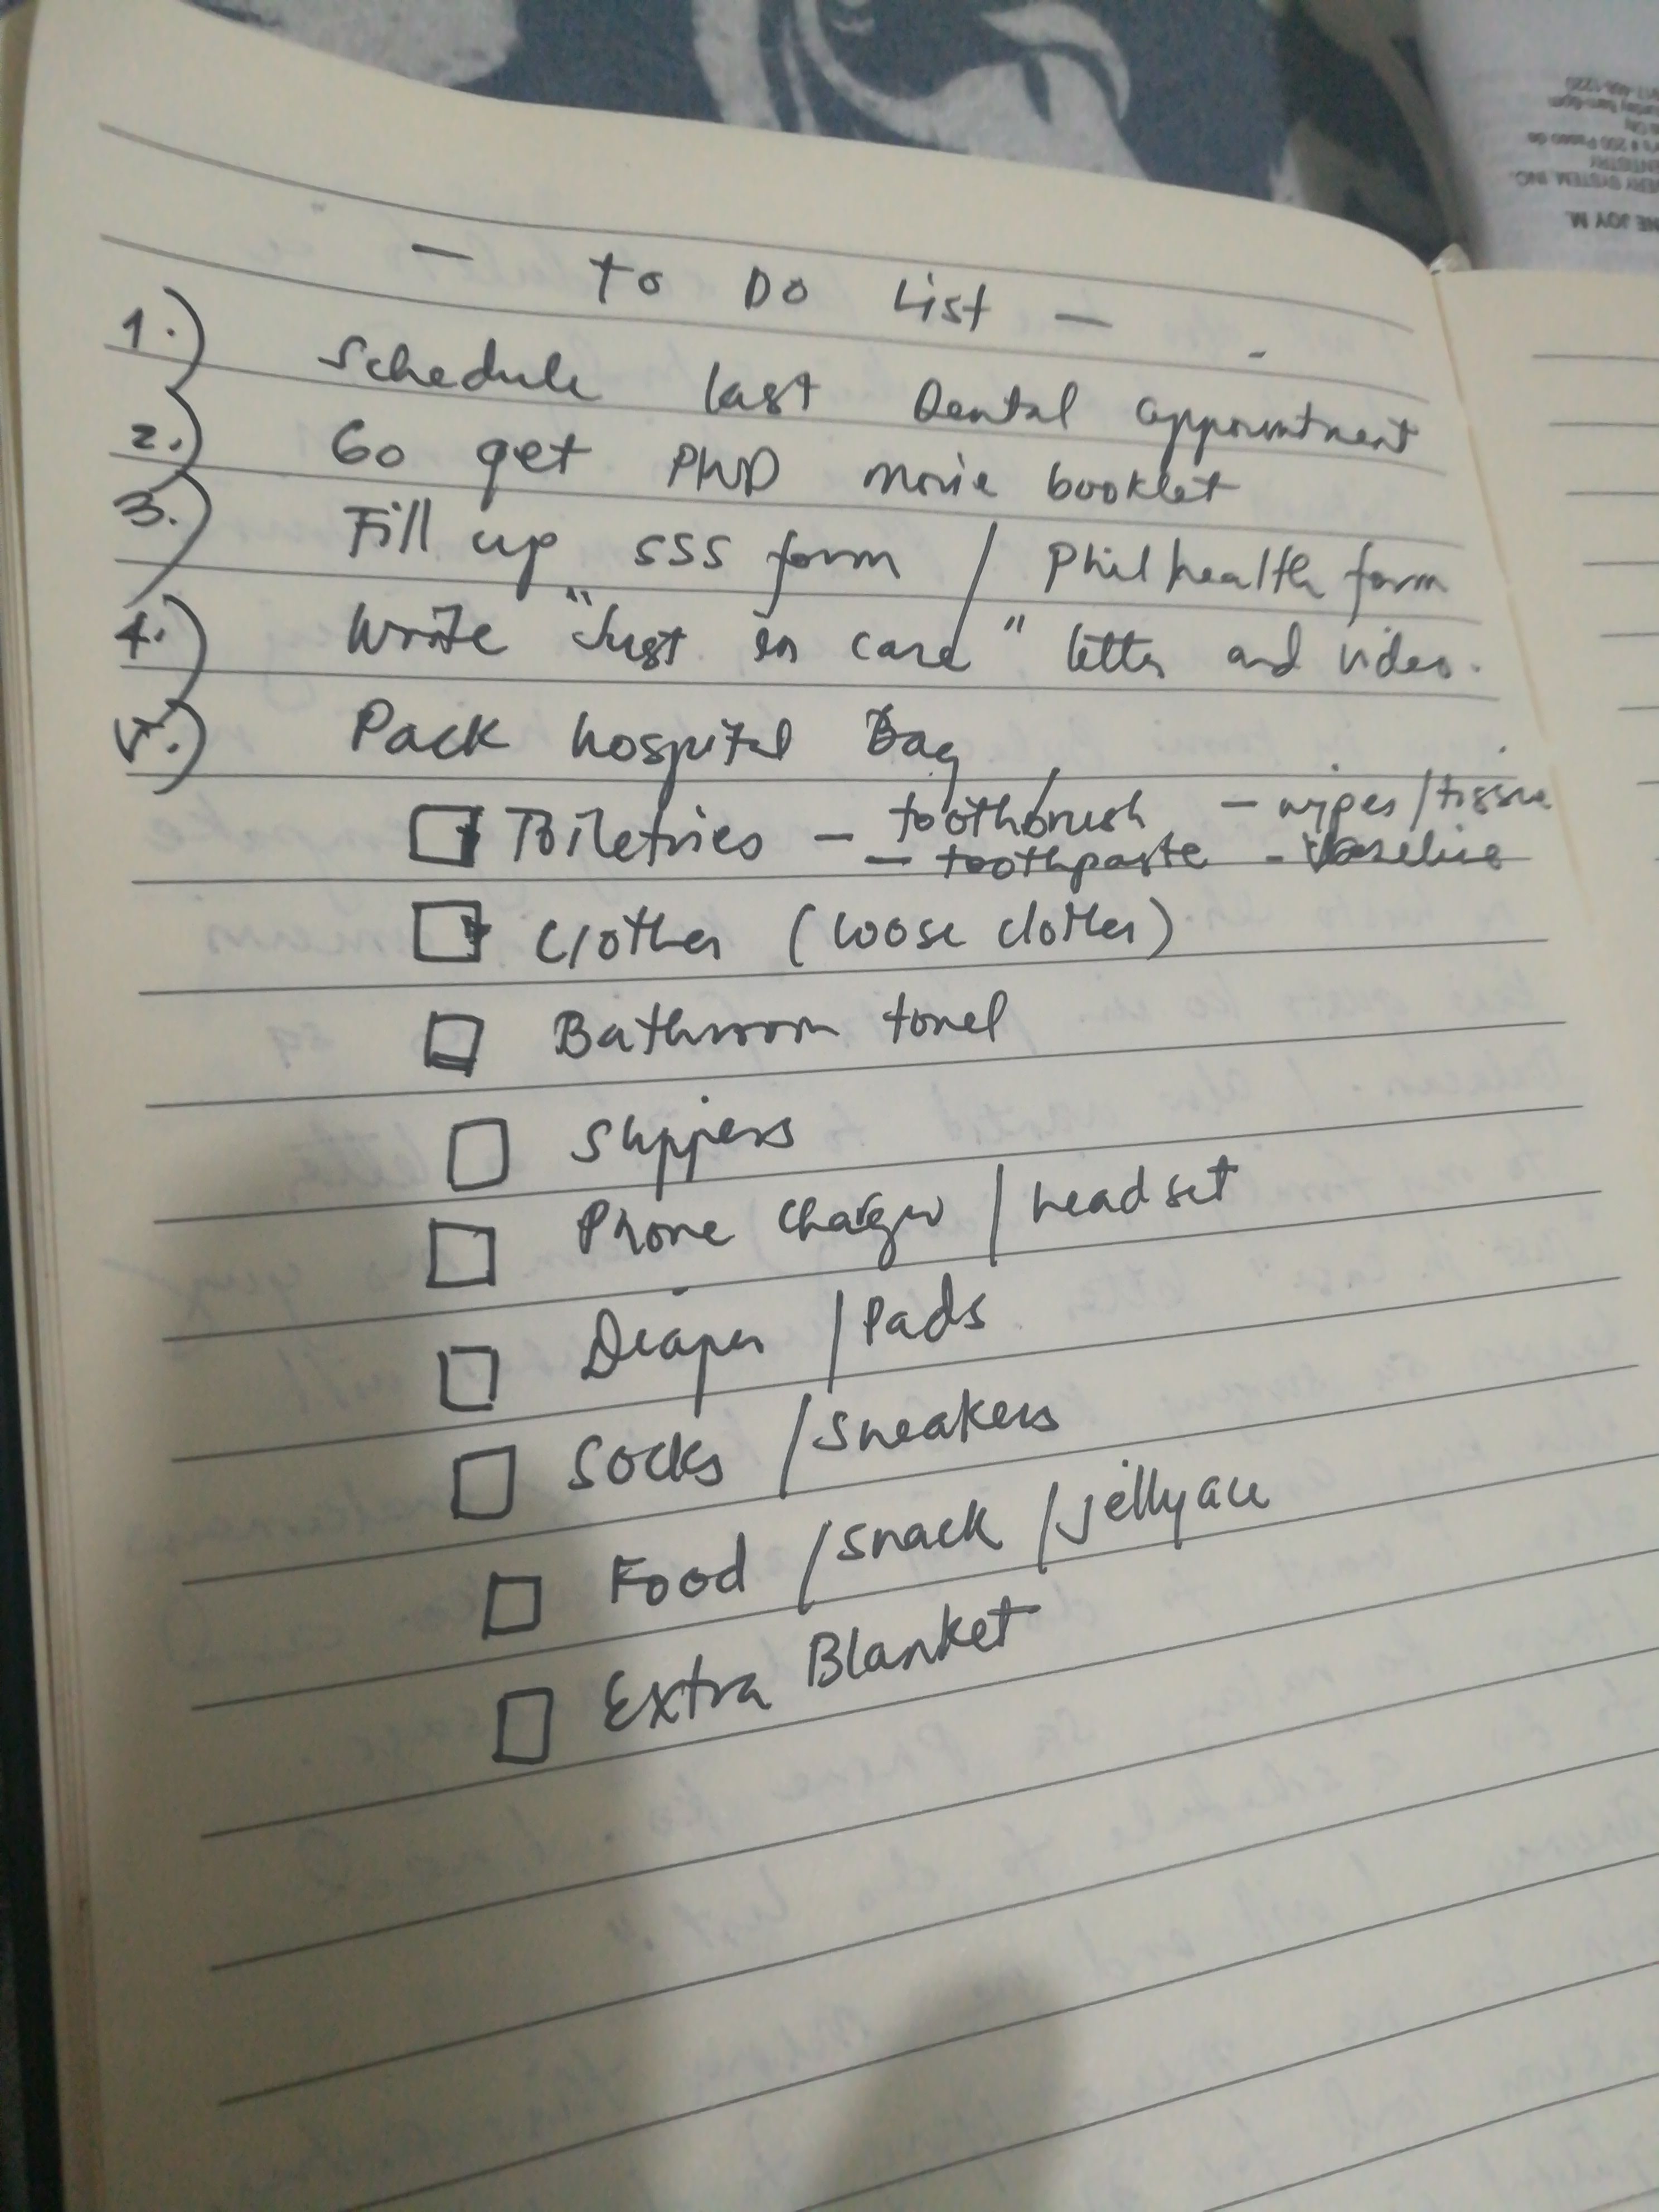 - To Do List -
1.) Schedule last Dental appointment
2.) Go get PWD movie booklet
3.) Fill up SSS form / Philhealth form
4.) Write "Just in case" letter and video.
5.) Pack hospital Bag
Toiletries - toothbrush - wipes/tissue
- toothpaste - Vaseline
Clothes (loose clothes)
Bathroom towel
Slippers
Phone charger / headset
Diaper / Pads
Socks / Sneakers
Food / snack / jellyace
Extra Blanket
NE JOY M.
ERY SYSTEM, INC.
ENTISTRY